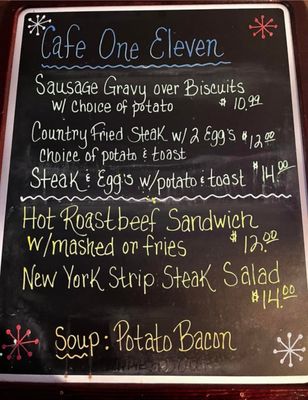 Cafe One Eleven
Sausage Gravy over Biscuits
w/ choice of potato $10.99
Country Fried Steak w/ 2 Egg's $12.00
choice of potato & toast
Steak & Egg's w/potato & toast $14.00
Hot Roastbeef Sandwich
w/mashed or fries $12.00
New York Strip Steak Salad
$14.00
Soup: Potato Bacon